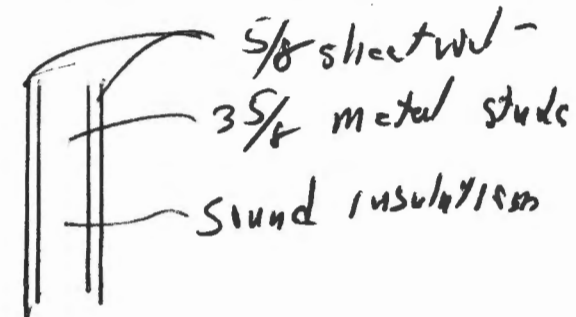 5/8 sheetrock
3 5/8 metal studs
Sound insulation